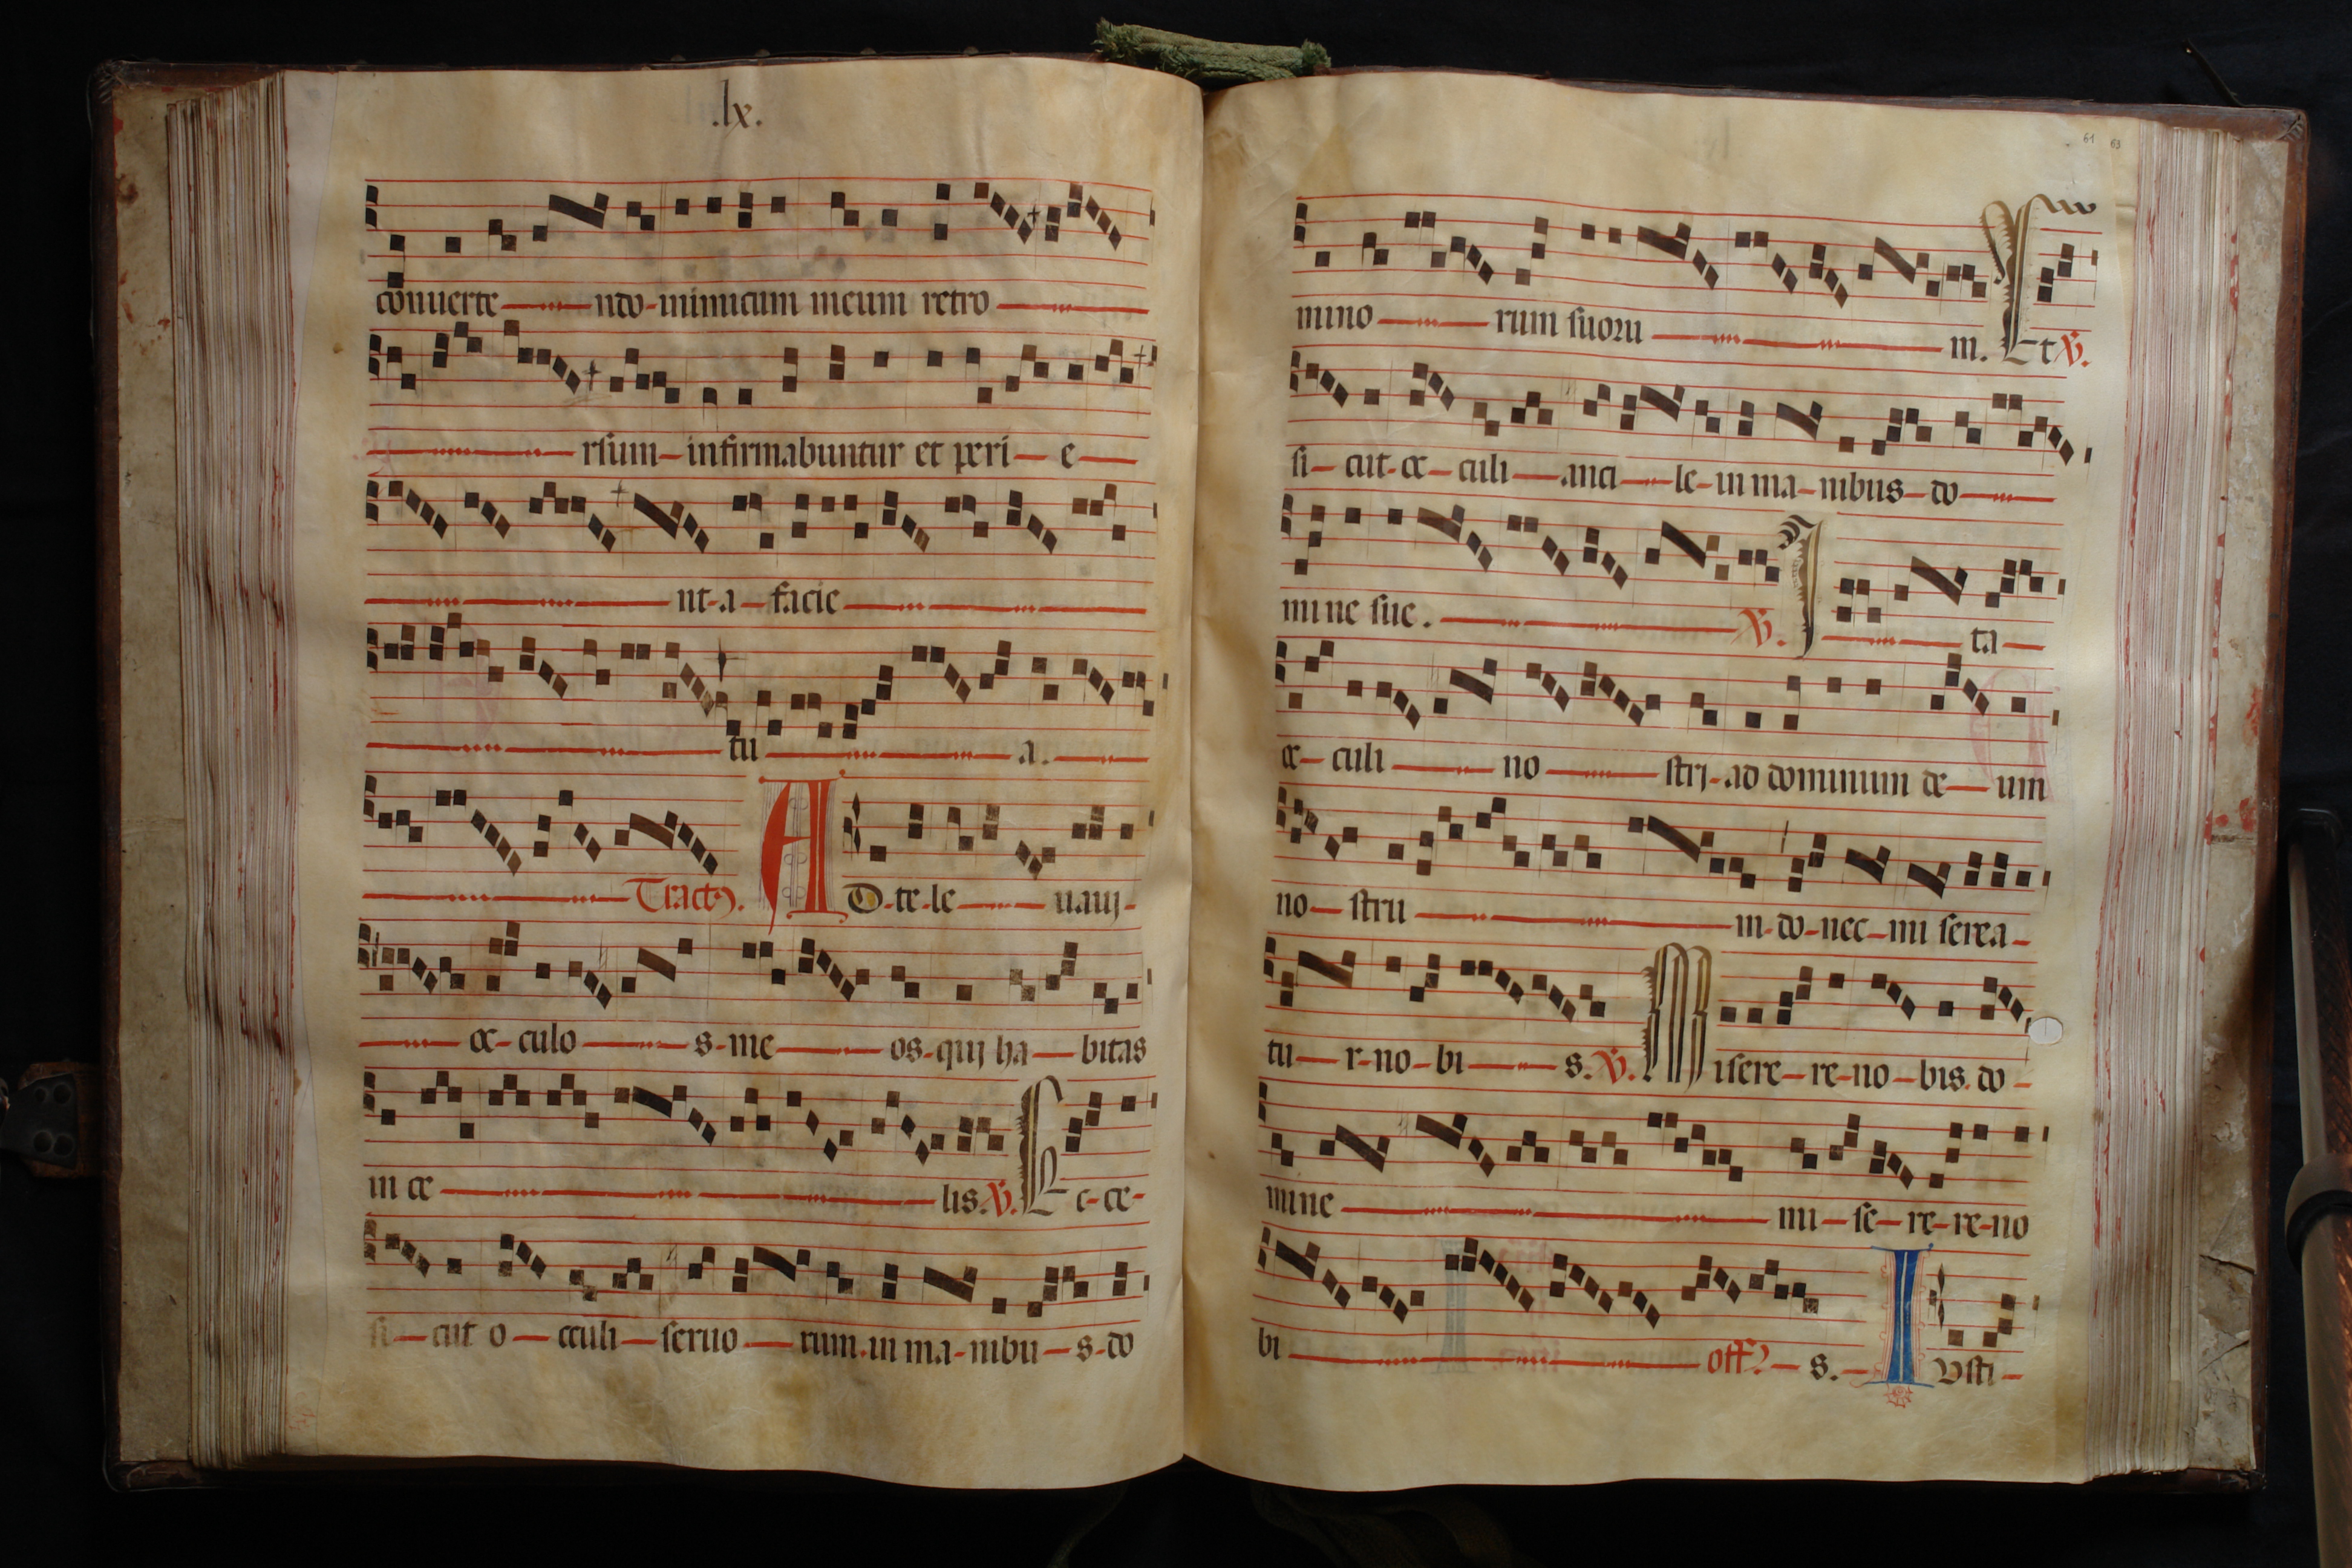 .lx.
conuerte ndo inimicum meum retro
rsum infirmabuntur et peri e
nt a facie
tu a.
Tract9. AD te le uauj
oc culo s me os quj ha bitas
in ce lis. V. Ec ce
si cut o cculi seruo rum in ma nibu s do
61 63
mino rum suoru m. Et V.
si cut oc culi anci le in ma nibus do
mine sue. V. I ta
oc culi no strj ad dominum de um
no stru m do nec mi serea
tu r no bi s. V. Misere re no bis do
mine mi se re re no
bi off? s. IVsti